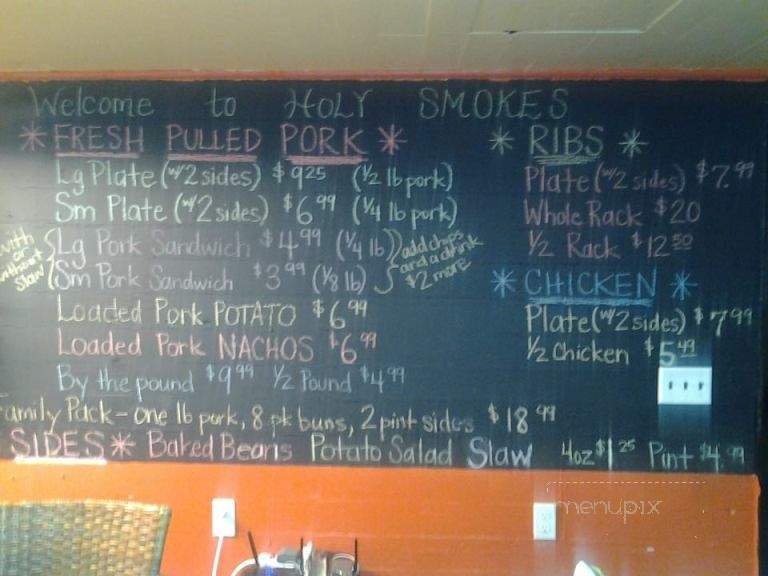 Welcome to HOLY SMOKES
* FRESH PULLED PORK *
Lg Plate (w/2 sides) $9.25 (1/2 lb pork)
Sm Plate (w/2 sides) $6.99 (1/4 lb pork)
with or without slaw
Lg Pork Sandwich $4.99 (1/4 lb)
Sm Pork Sandwich $3.99 (1/8 lb)
add chips and a drink $2 more
Loaded Pork POTATO $6.99
Loaded Pork NACHOS $6.99
By the pound $9.99 1/2 Pound $4.99
* RIBS *
Plate (w/2 sides) $7.99
Whole Rack $20
1/2 Rack $12.50
* CHICKEN *
Plate (w/2 sides) $7.99
1/2 Chicken $5.49
amily Pack - one lb pork, 8 pk buns, 2 pint sides $18.99
SIDES * Baked Beans Potato Salad Slaw 4oz $1.25 Pint $4.99
menupix